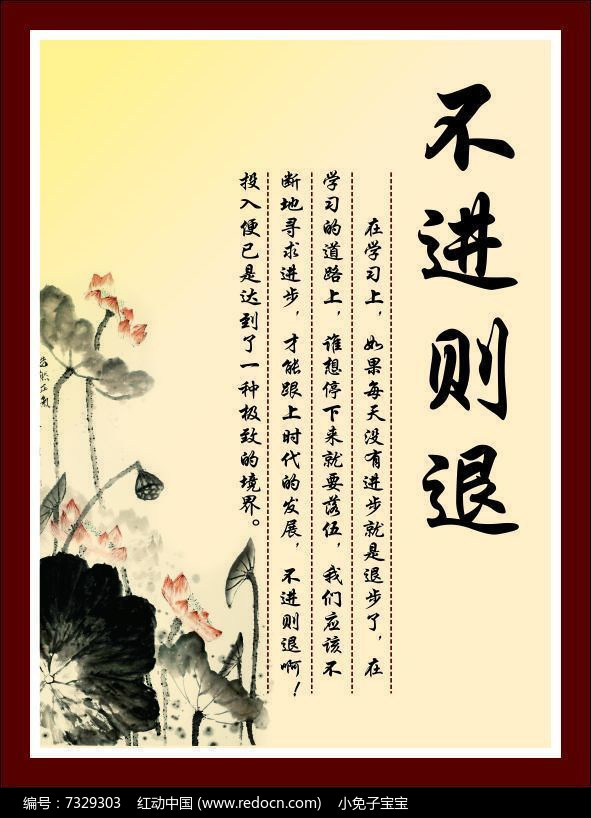 不进则退
在学习上，如果每天没有进步就是退步了，在
学习的道路上，谁想停下来就要落伍，我们应该不
断地寻求进步，才能跟上时代的发展，不进则退啊！
投入便已是达到了一种极致的境界。
编号：7329303 红动中国 (www.redocn.com) 小兔子宝宝